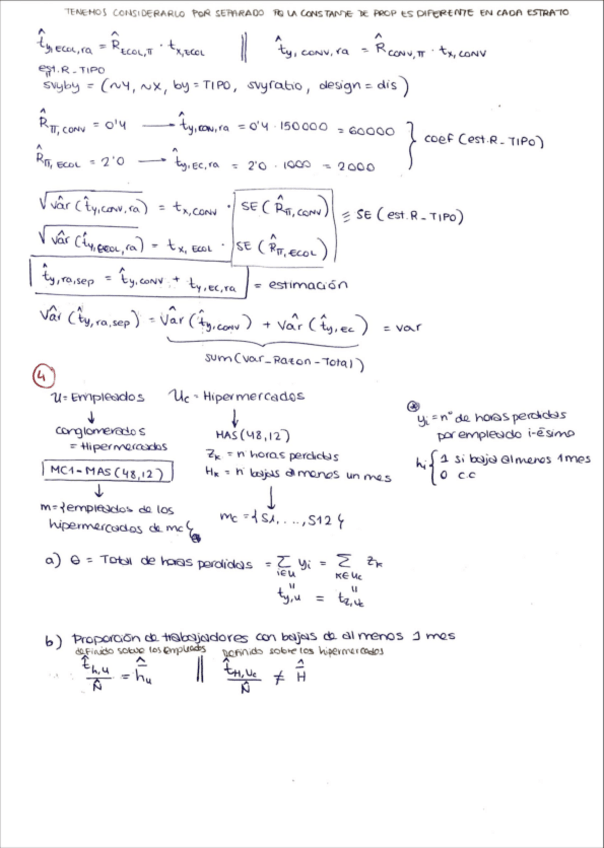 TENEMOS CONSIDERARLO POR SEPARADO PQ LA CONSTANTE DE PROP ES DIFERENTE EN CADA ESTRATO
t̂y,ECOL,ra = R̂ECOL,π · tx,ECOL || t̂y,CONV,ra = R̂CONV,π · tx,CONV
est.R-TIPO
svyby = (~Y, ~X, by=TIPO, svyratio, design=dis)
R̂π,CONV = 0'4 → t̂y,CON,ra = 0'4 · 150000 = 60000
R̂π,ECOL = 2'0 → t̂y,EC,ra = 2'0 · 1000 = 2000
} coef(est.R-TIPO)
√vâr(t̂y,CONV,ra) = tx,CONV · SE(R̂π,CONV)
≡ SE(est.R-TIPO)
√vâr(t̂y,ECOL,ra) = tx,ECOL · SE(R̂π,ECOL)
t̂y,ra,sep = t̂y,CONV + t̂y,EC,ra = estimación
Vâr(t̂y,ra,sep) = Vâr(t̂y,conv) + Vâr(t̂y,ec) = var
sum(var_Razon-Total)
4
U = Empleados Uc = Hipermercados
conglomerados
= Hipermercados
MC1-MAS(48,12)
m = {empleados de los
hipermercados de mc}
MAS(48,12)
Zk = n horas perdidas
Hk = n bajas al menos un mes
mc = {S1, ..., S12}
yi = nº de horas perdidas
por empleado i-ésimo
hi { 1 si baja al menos 1 mes
0 c.c
a) Θ = Total de horas perdidas = Σ i∈U yi = Σ k∈Uc Zk
ty,u = tz,uc
b) Proporción de trabajadores con bajas de al menos 1 mes
definido sobre los empleados Definido sobre los hipermercados
t̂h,u / N̂ = ĥ̄u || t̂H,Uc / N̂ ≠ Ĥ̄